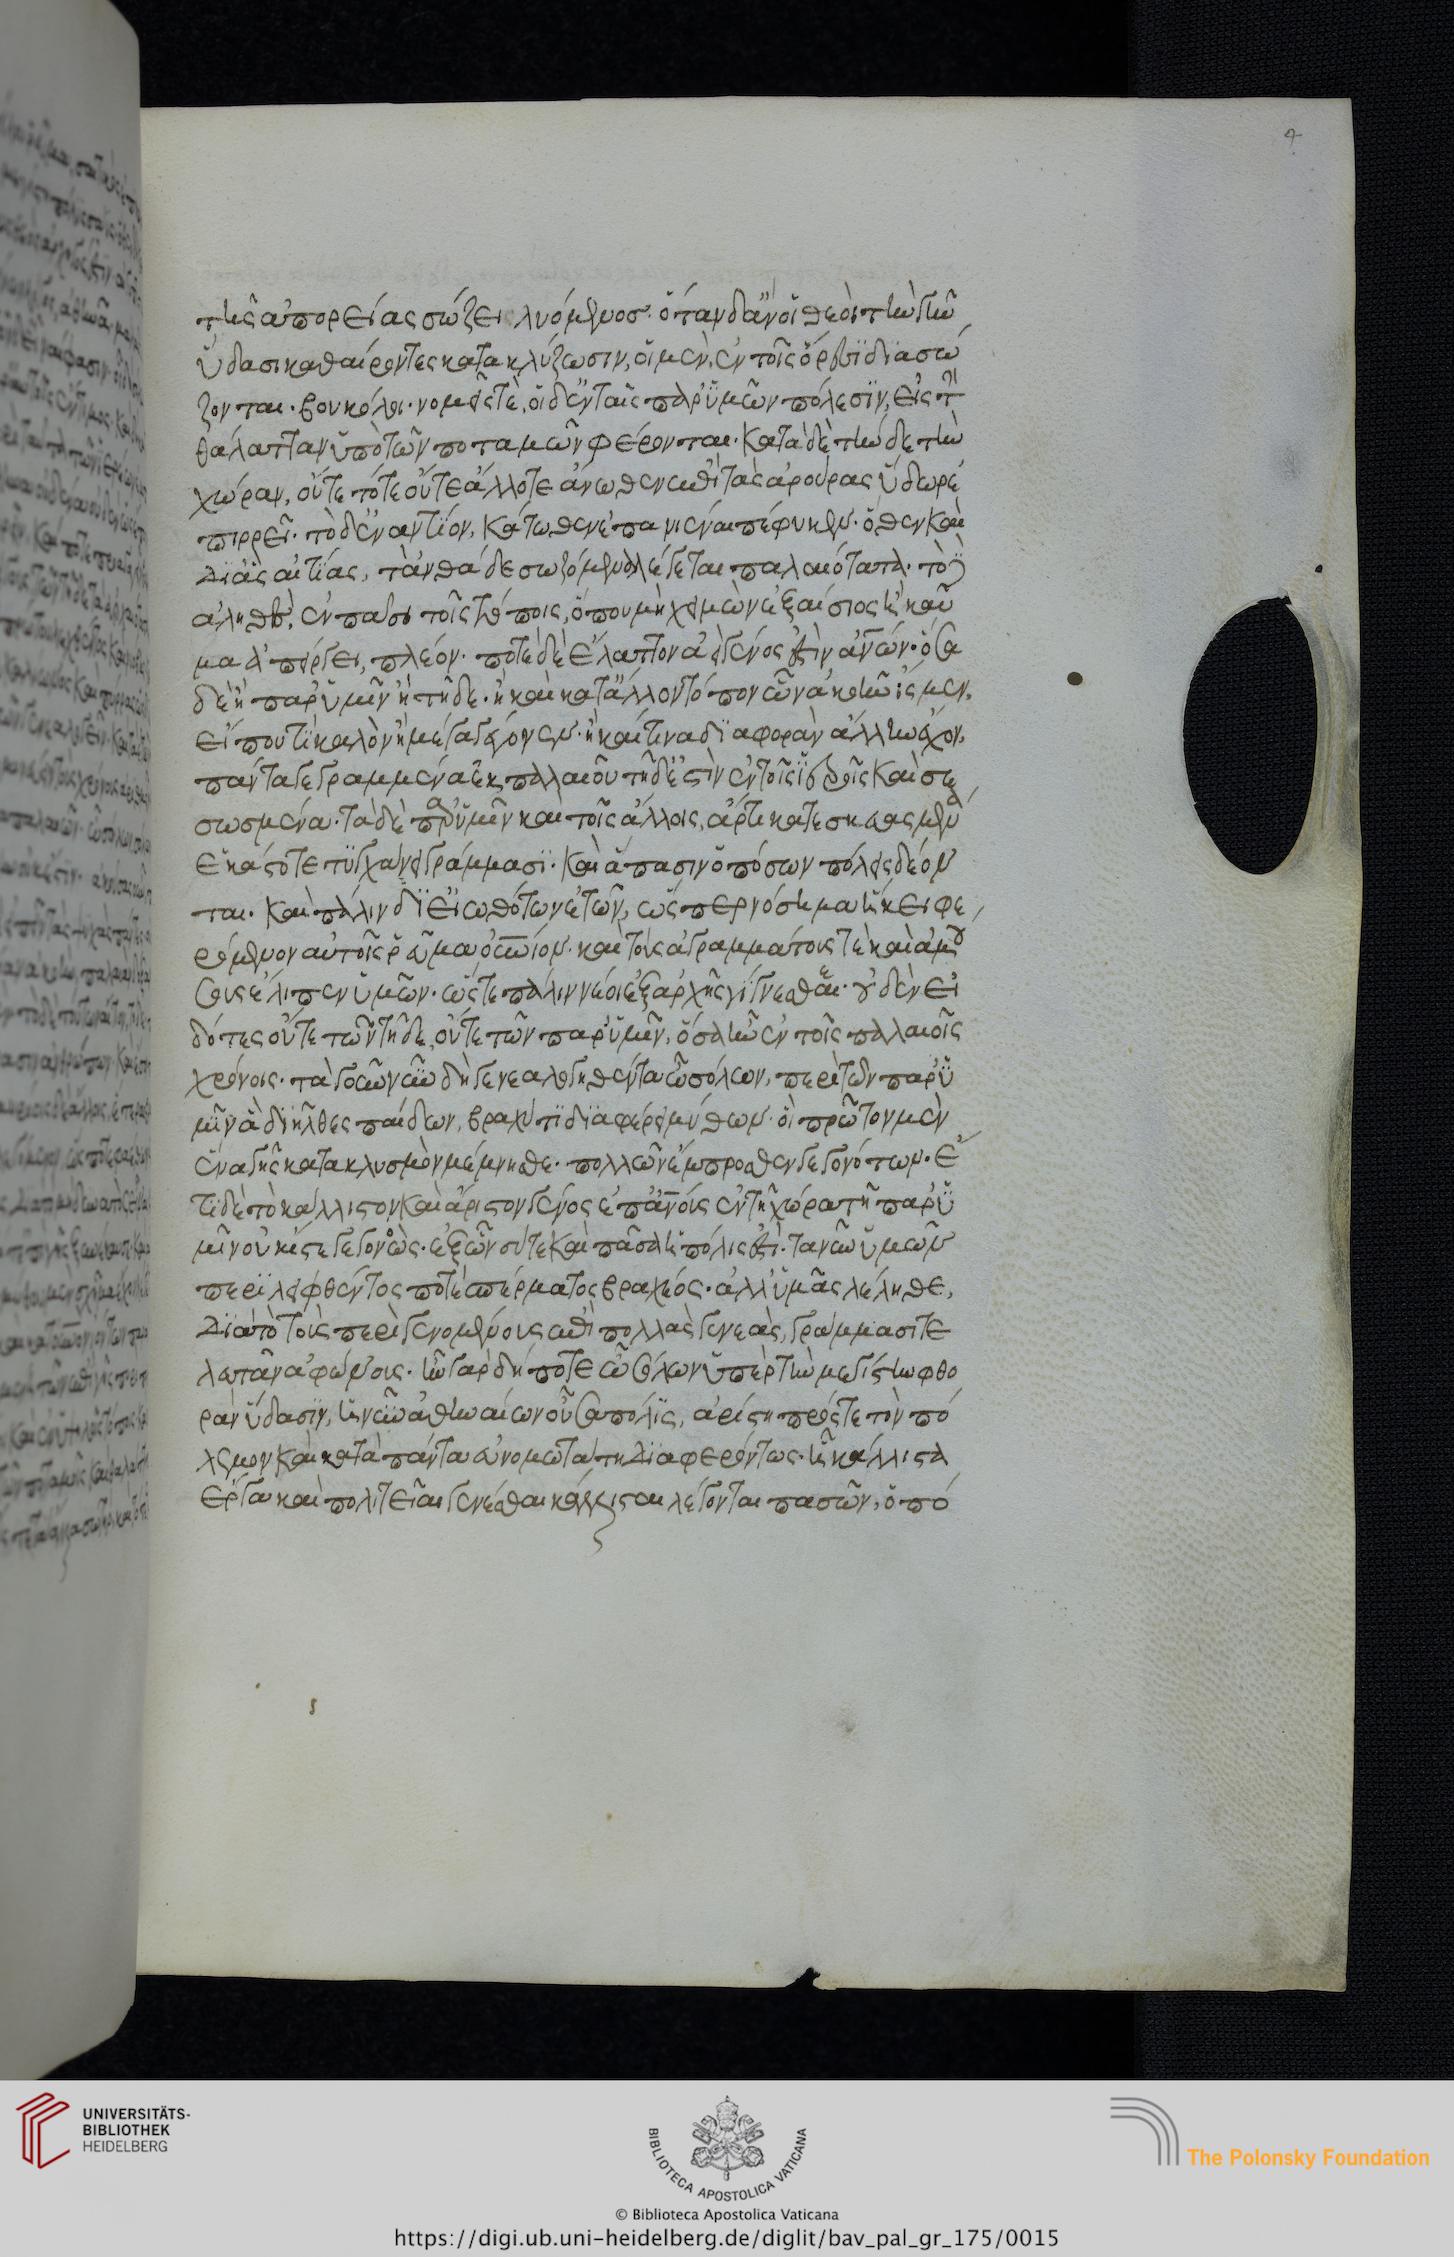 4
τῆς ἀπορείας σώζει λυόμενος. ὅταν δ' ἂν οἱ θεοὶ τὴν γῆν
ὕδασι καθαίροντες κατακλύζωσιν, οἱ μὲν, ἐν τοῖς ὄρεσι διασώ
ζονται. βουκόλοι. νομεῖς τὲ, οἱ δ' ἐν ταῖς παρ' ὑμῖν πόλεσιν, εἰς τὴν
θάλατταν ὑπὸ τῶν ποταμῶν φέρονται. κατὰ δὲ τήνδε τὴν
χώραν, οὔτε τότε οὔτε ἄλλοτε ἄνωθεν ἐπὶ τὰς ἀρούρας ὕδωρ ἐ
πιρρεῖ. τὸ δ' ἐναντίον, κάτωθεν ἐπανιέναι πέφυκεν. ὅθεν καὶ
δι' ἃς αἰτίας, τἀνθάδε σωζόμενα λέγεται παλαιότατα. τὸ δ'
ἀληθὲς, ἐν πᾶσι τοῖς τόποις, ὅπου μὴ χειμὼν ἐξαίσιος ἢ καῦ
μα ἀπείργει, πλέον. τοτὲ δὲ ἔλαττον ἀεὶ γένος ἐστὶν ἀνων. ὅσα
δὲ ἢ παρ' ὑμῖν ἢ τῇδε. ἢ καὶ κατ' ἄλλον τόπον ὧν ἀκοῇ ἴσμεν,
εἴ που τι καλὸν ἢ μέγα γέγονεν. ἢ καί τινα διαφορὰν ἄλλην ἔχον,
πάντα γεγραμμένα ἐκ παλαιοῦ τῇδ' ἐστὶν ἐν τοῖς ἱεροῖς καὶ σε
σωσμένα. τὰ δὲ παρ' ὑμῖν καὶ τοῖς ἄλλοις, ἄρτι κατεσκευασμένα
ἑκάστοτε τυγχάνει γράμμασι. καὶ ἅπασιν ὁπόσων πόλεις δέον
ται. καὶ πάλιν δι' εἰωθότων ἐτῶν, ὥσπερ νόσημα ἥκει φε
ρόμενον αὐτοῖς ῥεῦμα οὐνιον. καὶ τοὺς ἀγραμμάτους τὲ καὶ ἀμού
σους ἔλιπεν ὑμῶν. ὥστε πάλιν νέοι ἐξ ἀρχῆς γίγνεσθαι. οὐδὲν εἰ
δότες οὔτε τῶν τῇδε, οὔτε τῶν παρ' ὑμῖν, ὅσα ἦν ἐν τοῖς παλαιοῖς
χρόνοις. τὰ γοῦν νῦν δὴ γενεαλογηθέντα ὦ σόλων, περὶ τῶν παρ' ὑ
μῖν ἃ διῆλθες παίδων, βραχύ τι διαφέρει μύθων. οἳ πρῶτον μὲν
ἕνα γῆς κατακλυσμὸν μέμνησθε. πολλῶν ἔμπροσθεν γεγονότων. ἔ
τι δὲ τὸ κάλλιστον καὶ ἄριστον γένος ἐπ' ἀνοις ἐν τῇ χώρα τῇ παρ' ὑ
μῖν οὐκ ἴστε γεγονὸς. ἐξ ὧν σύ τε καὶ πᾶσα ἡ πόλις ἐστὶ. τανῦν ὑμῶν
περιλειφθέντος ποτὲ σπέρματος βραχέος. ἀλλ' ὑμᾶς λέληθε,
διὰ τὸ τοὺς περιγενομένους ἐπὶ πολλὰς γενεὰς, γράμμασι τε
λευτᾶν ἀφώνους. ἦν γὰρ δή ποτε ὦ σόλων ὑπὲρ τὴν μεγίστην φθο
ρὰν ὕδασιν, ἡ νῦν ἀθηναίων οὖσα πόλις, ἀρίστη πρός τε τὸν πό
λεμον καὶ κατὰ πάντα εὐνομωτάτη διαφερόντως. ἧ κάλλιστα
ἔργα καὶ πολιτεῖαι γενέσθαι κάλλισται λέγονται πασῶν, ὁπό
UNIVERSITÄTS-
BIBLIOTHEK
HEIDELBERG
BIBLIOTECA APOSTOLICA VATICANA
The Polonsky Foundation
© Biblioteca Apostolica Vaticana
https://digi.ub.uni-heidelberg.de/diglit/bav_pal_gr_175/0015